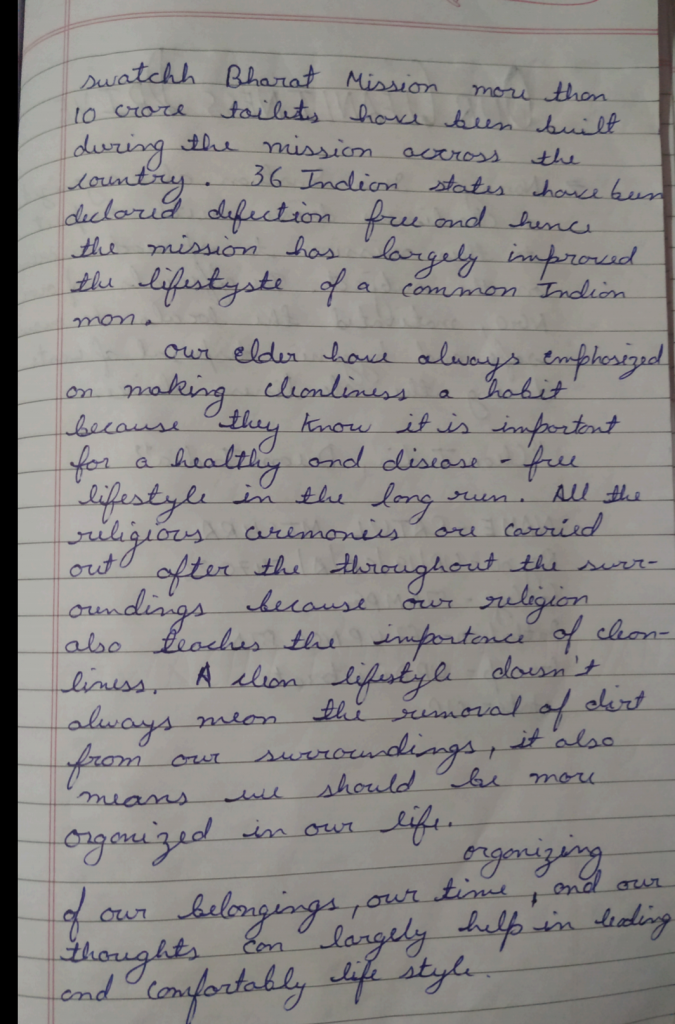 swatchh Bharat Mission more than
10 crore toilets have been built
during the mission accross the
country. 36 Indian states have been
declared defection free and hence
the mission has largely improved
the lifestyste of a common Indian
man.
our elder have always emphasized
on making cleanliness a habit
because they know it is important
for a healthy and disease - free
lifestyle in the long run. All the
religious ceremonies are carried
out after the throughout the surr-
oundings because our religion
also teaches the importance of clean-
liness. A clean lifestyle doesn't
always mean the removal of dirt
from our surroundings, it also
means we should be more
organized in our life.
organizing
of our belongings, our time, and our
thoughts can largely help in leading
and comfortably life style.